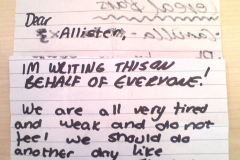 Dear
Allister,
IM WRITING THIS ON
BEHALF OF EVERYONE!
We are all very tired
and weak and do not
feel we should do
another day like